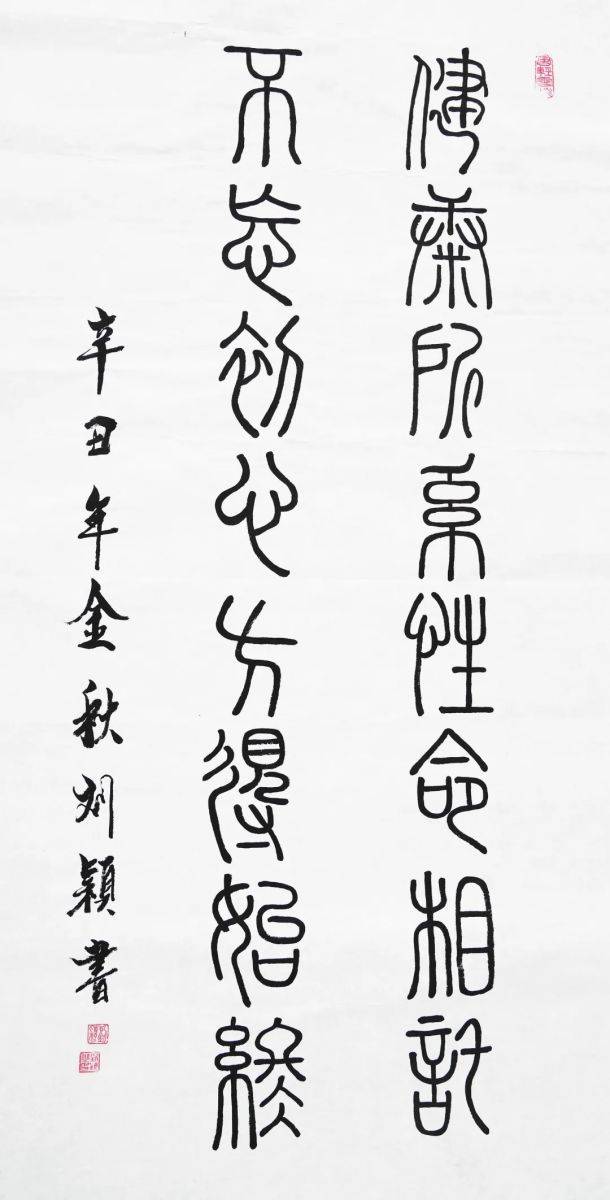 健康所系性命相託
不忘初心方得始終
辛丑年金秋刘颖書